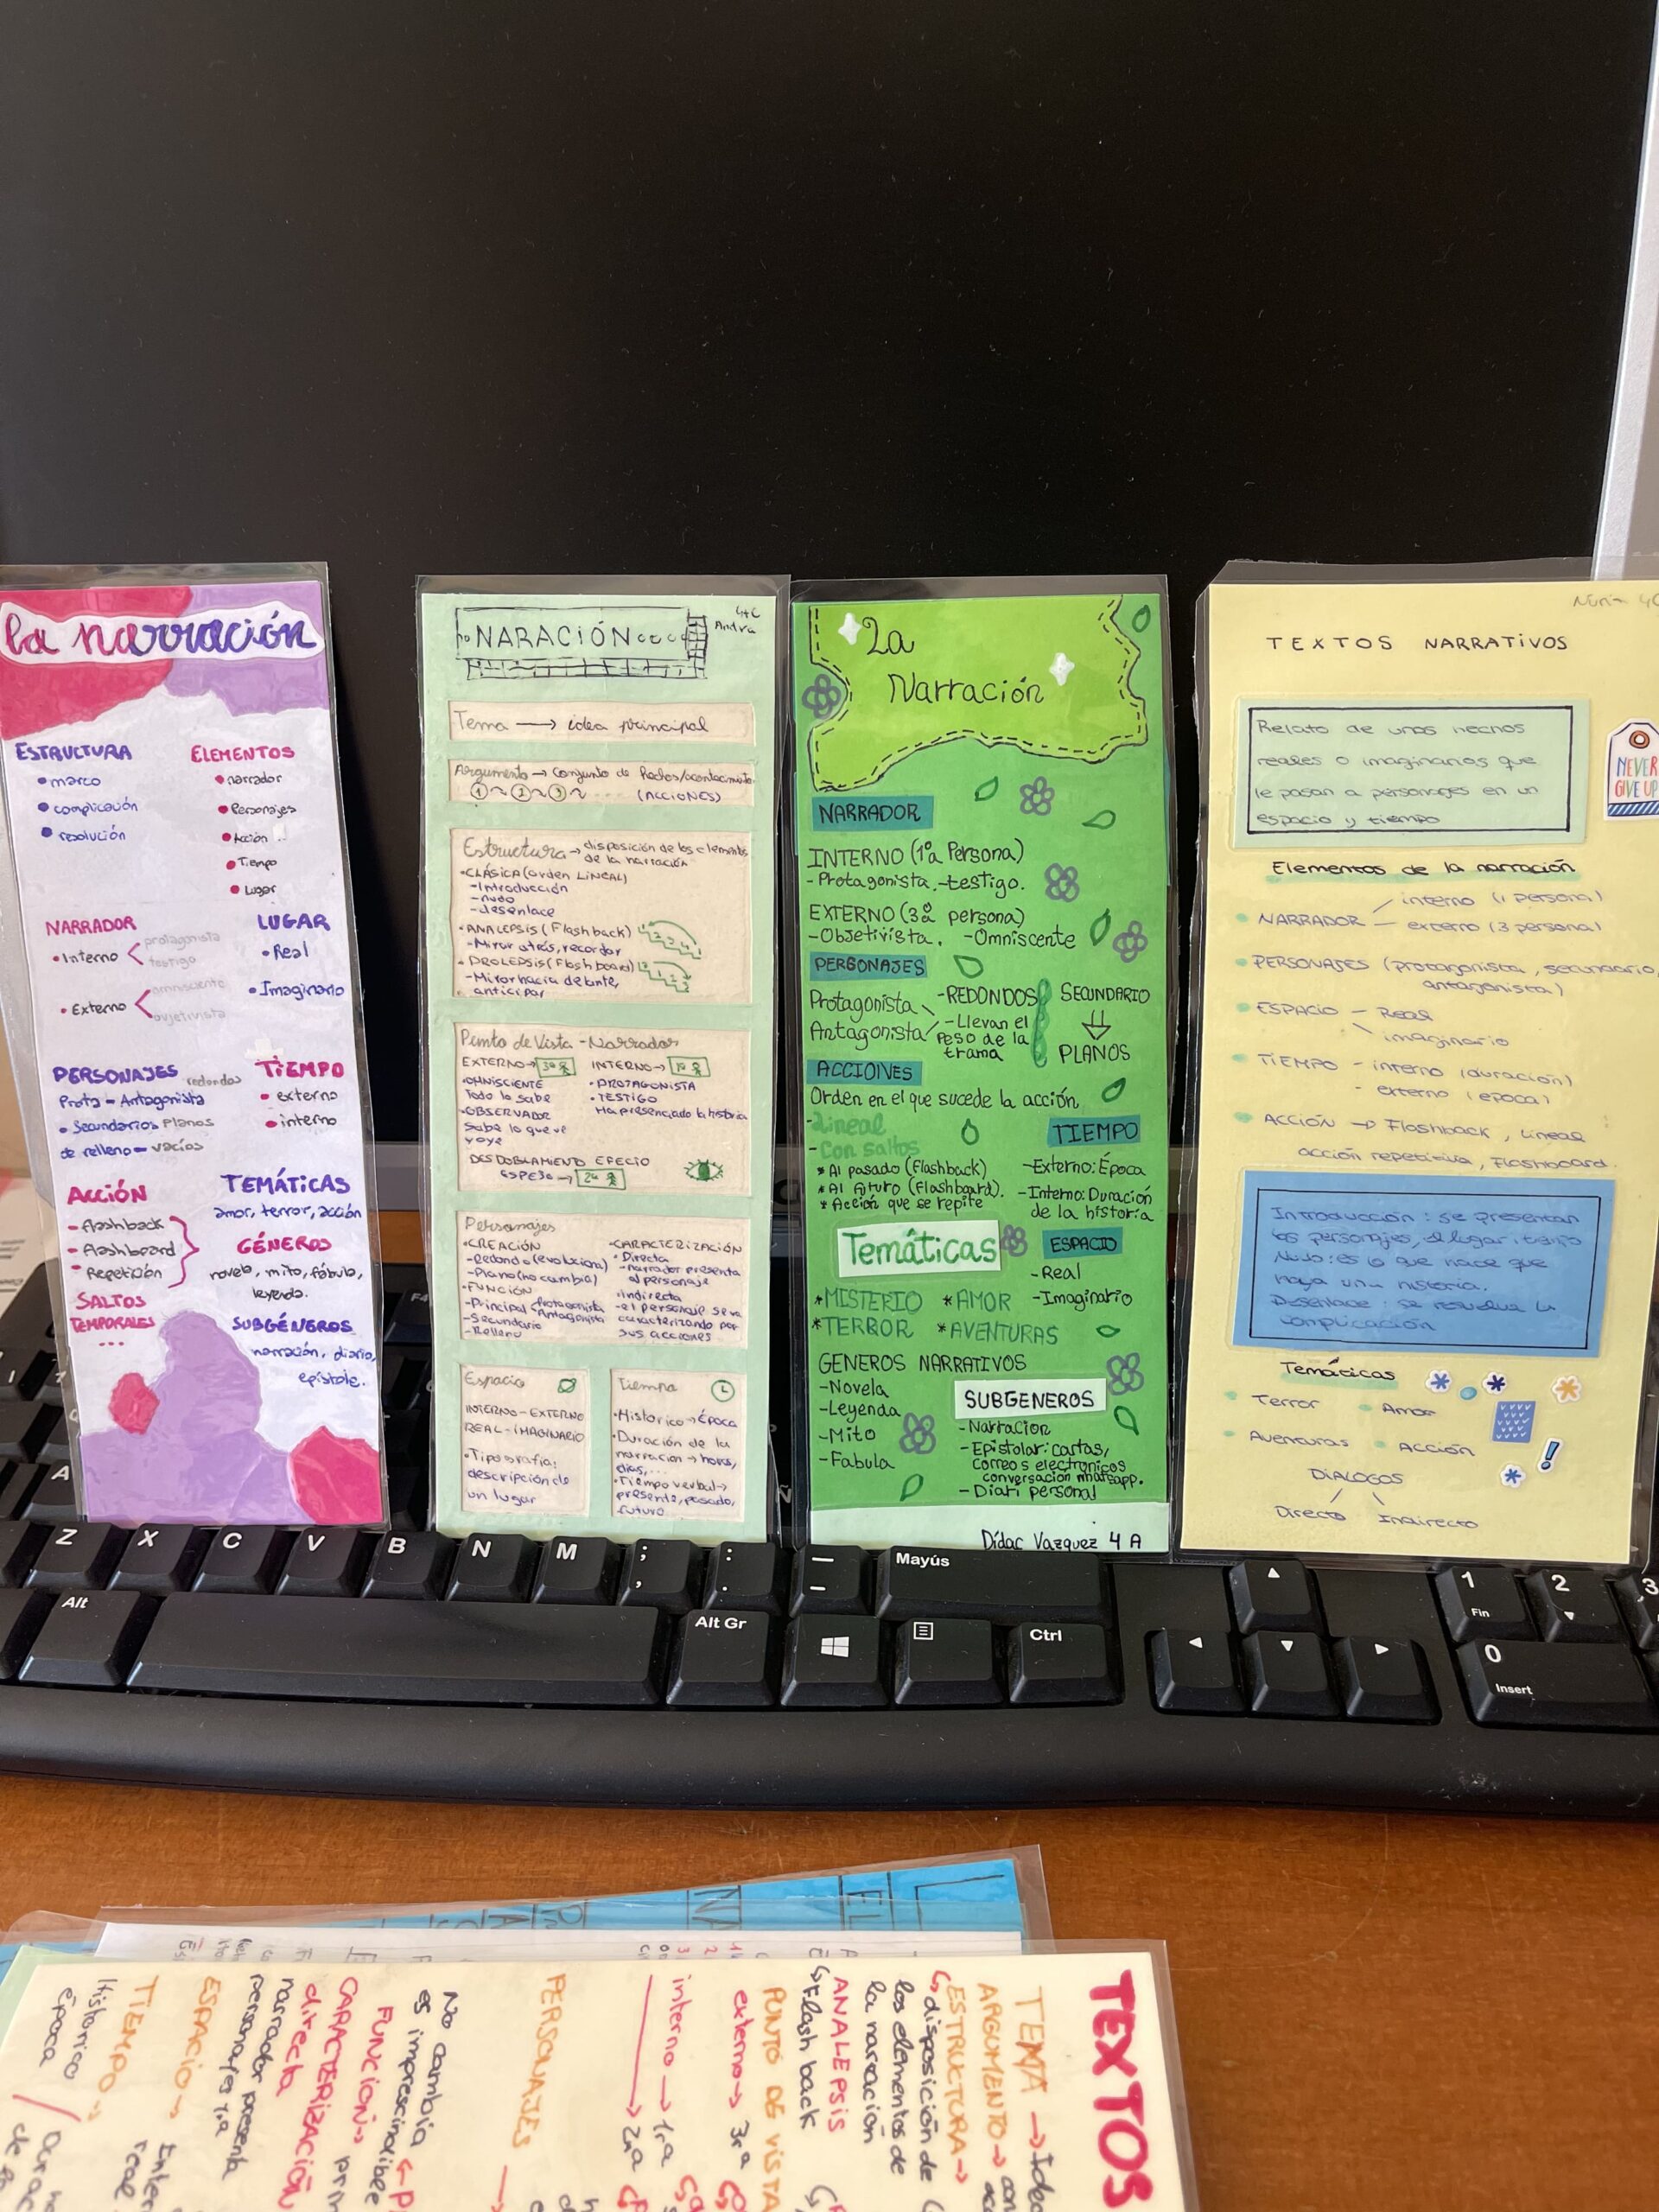 la narración
ESTRUCTURA
• marco
• complicación
• resolución
ELEMENTOS
• narrador
• Personajes
• Acción ..
• Tiempo
• Lugar
NARRADOR
• Interno < protagonista
testigo
• Externo < omnisciente
ovjetivista
LUGAR
• Real
• Imaginario
PERSONAJES redondos
Prota - Antagonista
• Secundarios Planos
de relleno - vacíos
TiEMPO
• externo
• interno
ACCIÓN
- flashback
- flashboard
- Repetición
SALTOS
TEMPORALES
...
TEMÁTICAS
amor, terror, acción
GÉNEROS
novela, mito, fábula,
leyenda.
SUBGÉNEROS
narración, diario,
epístole.
NARACIÓN
4tC
Andra
Tema → idea principal
Argumento → conjunto de hechos/acontecimiento.
1 ~ 2 ~ 3 ~ ... (ACCIONES)
Estructura → disposición de los elementos
de la narración
• CLÁSICA (orden LINEAL)
- Introducción
- nudo
- desenlace
• ANALEPSIS (Flashback)
- Mirar atrás, recordar
• PROLEPSIS (Flashboard)
- Mirar hacia delante,
anticipar
Punto de Vista - Narrador
EXTERNO → 3a
• OMNISCIENTE
Todo lo sabe
• OBSERVADOR
Sabe lo que ve
y oye
INTERNO → 1a
• PROTAGONISTA
• TESTIGO
Ha presenciado la historia
DESDOBLAMIENTO EFECIO
ESPEJO → 2a
Personajes
• CREACIÓN
- Redondo (evoluciona)
- Plano (no cambia)
• FUNCIÓN
- Principal Protagonista
Antagonista
- Secundario
- Relleno
• CARACTERIZACIÓN
• Directa
- narrador presenta
al personaje
• Indirecta
- el personaje se va
caracterizando por
sus acciones
Espacio
INTERNO - EXTERNO
REAL - IMAGINARIO
• Tipografia,
descripción de
un lugar
Tiempo
• Historico → Época
• Duración de la
narracion → horas,
dias,...
• Tiempo verbal →
presente, pasado,
futuro
La
Narración
NARRADOR
INTERNO (1ª Persona)
- Protagonista. - testigo.
EXTERNO (3ª persona)
- Objetivista. - Omniscente
PERSONAJES
Protagonista
Antagonista
- REDONDOS
- Llevan el
peso de la
trama
SECUNDARIO
⇓
PLANOS
ACCIONES
Orden en el que sucede la acción
- Lineal
- Con saltos
* Al pasado (flashback)
* Al futuro (flashboard).
* Acción que se repite
TIEMPO
- Externo: Época
- Interno: Duración
de la historia
Temáticas
* MISTERIO * AMOR
* TERROR * AVENTURAS
ESPACIO
- Real
- Imaginario
GENEROS NARRATIVOS
- Novela
- Leyenda
- Mito
- Fabula
SUBGENEROS
- Narracion
- Epistolar: cartas,
correos electronicos
conversacion whatsapp.
- Diari personal
Dídac Vazquez 4 A
TEXTOS NARRATIVOS
Relato de unos hechos
reales o imaginarios que
le pasan a personajes en un
espacio y tiempo
NEVER
GIVE UP
Elementos de la narración
• NARRADOR / interno (1 persona)
— externo (3 persona)
• PERSONAJES (protagonista, secundario,
antagonista)
• ESPACIO — Real
\ imaginario
• TIEMPO - interno (duración)
- externo (epoca)
• ACCIÓN → Flashback, Lineal
acción repetitiva, Flashboard.
Introducción: se presentan
los personajes, el lugar, tiempo
Nudo: es lo que hace que
haya una historia.
Desenlace: se resuelva la
complicación
Temáticas
• Terror • Amor
• Aventuras • Acción
DIALOGOS
Directo Indirecto
Z X C V B N M ; , : . — - Mayús
Alt Alt Gr Ctrl
1 Fin 2 3
0 Insert
TEXTOS
TEMA → Idea
ARGUMENTO →
ESTRUCTURA →
↳ disposición de
los elementos de
la naración
ANALEPSIS
↳ Flash back
PUNTO DE VISTA
externo → 3r a
interno → 1r a
→ 2n a
PERSONAJES →
No cambia
es imprescindible
FUNCIÓN →
CARACTERIZACIÓN
directa
narrador presenta
personajes
ESPACIO →
TIEMPO →
Historico
época